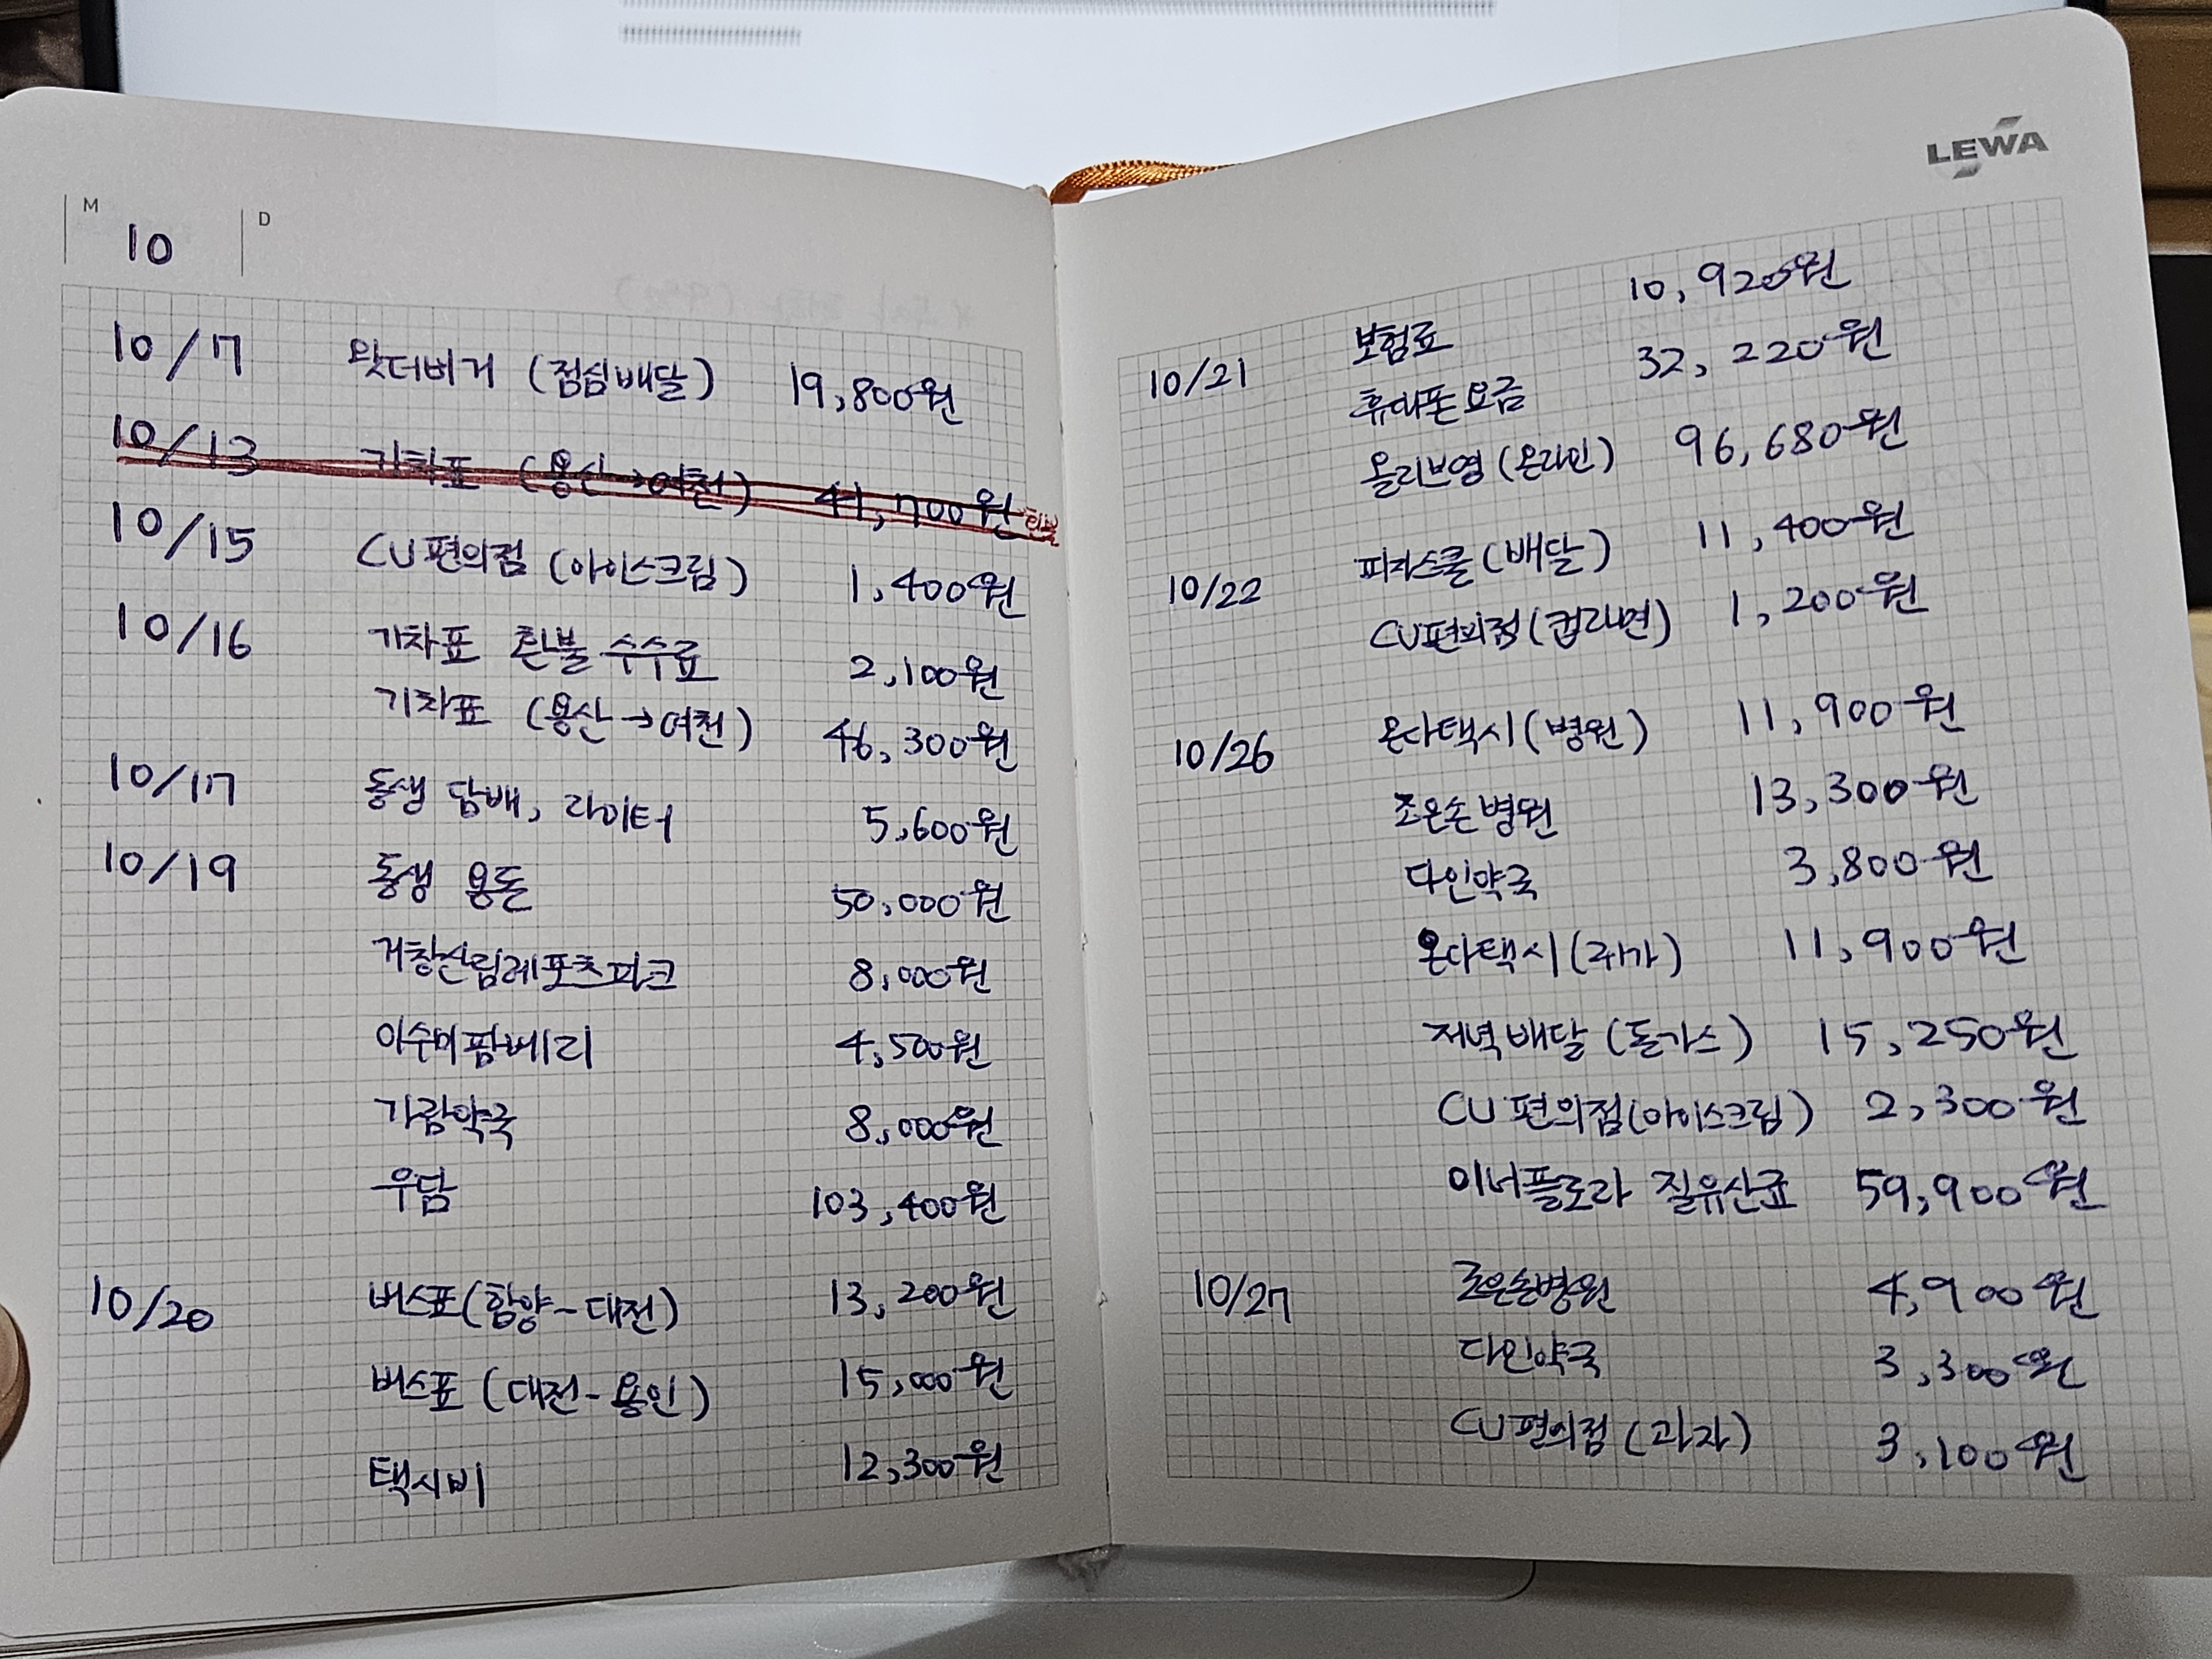 M
10
D
10/7 왓더버거 (점심배달) 19,800원
10/13 기차표 (용산→여천) 41,700원 환불
10/15 CU편의점 (아이스크림) 1,400원
10/16 기차표 환불 수수료 2,100원
기차표 (용산→여천) 46,300원
10/17 동생 담배, 라이터 5,600원
10/19 동생 용돈 50,000원
거창산림레포츠파크 8,000원
이수미팜베리 4,500원
가람약국 8,000원
우담 103,400원
10/20 버스표(함양-대전) 13,200원
버스표 (대전-용인) 15,000원
택시비 12,300원
LEWA
10/21 보험료 10,920원
휴대폰요금 32,220원
올리브영(온라인) 96,680원
10/22 피자스쿨(배달) 11,400원
CU편의점(컵라면) 1,200원
10/26 온다택시(병원) 11,900원
조은손병원 13,300원
다인약국 3,800원
온다택시(귀가) 11,900원
저녁배달 (돈가스) 15,250원
CU편의점(아이스크림) 2,300원
이너플로라 질유산균 59,900원
10/27 조은손병원 4,900원
다인약국 3,300원
CU편의점 (과자) 3,100원